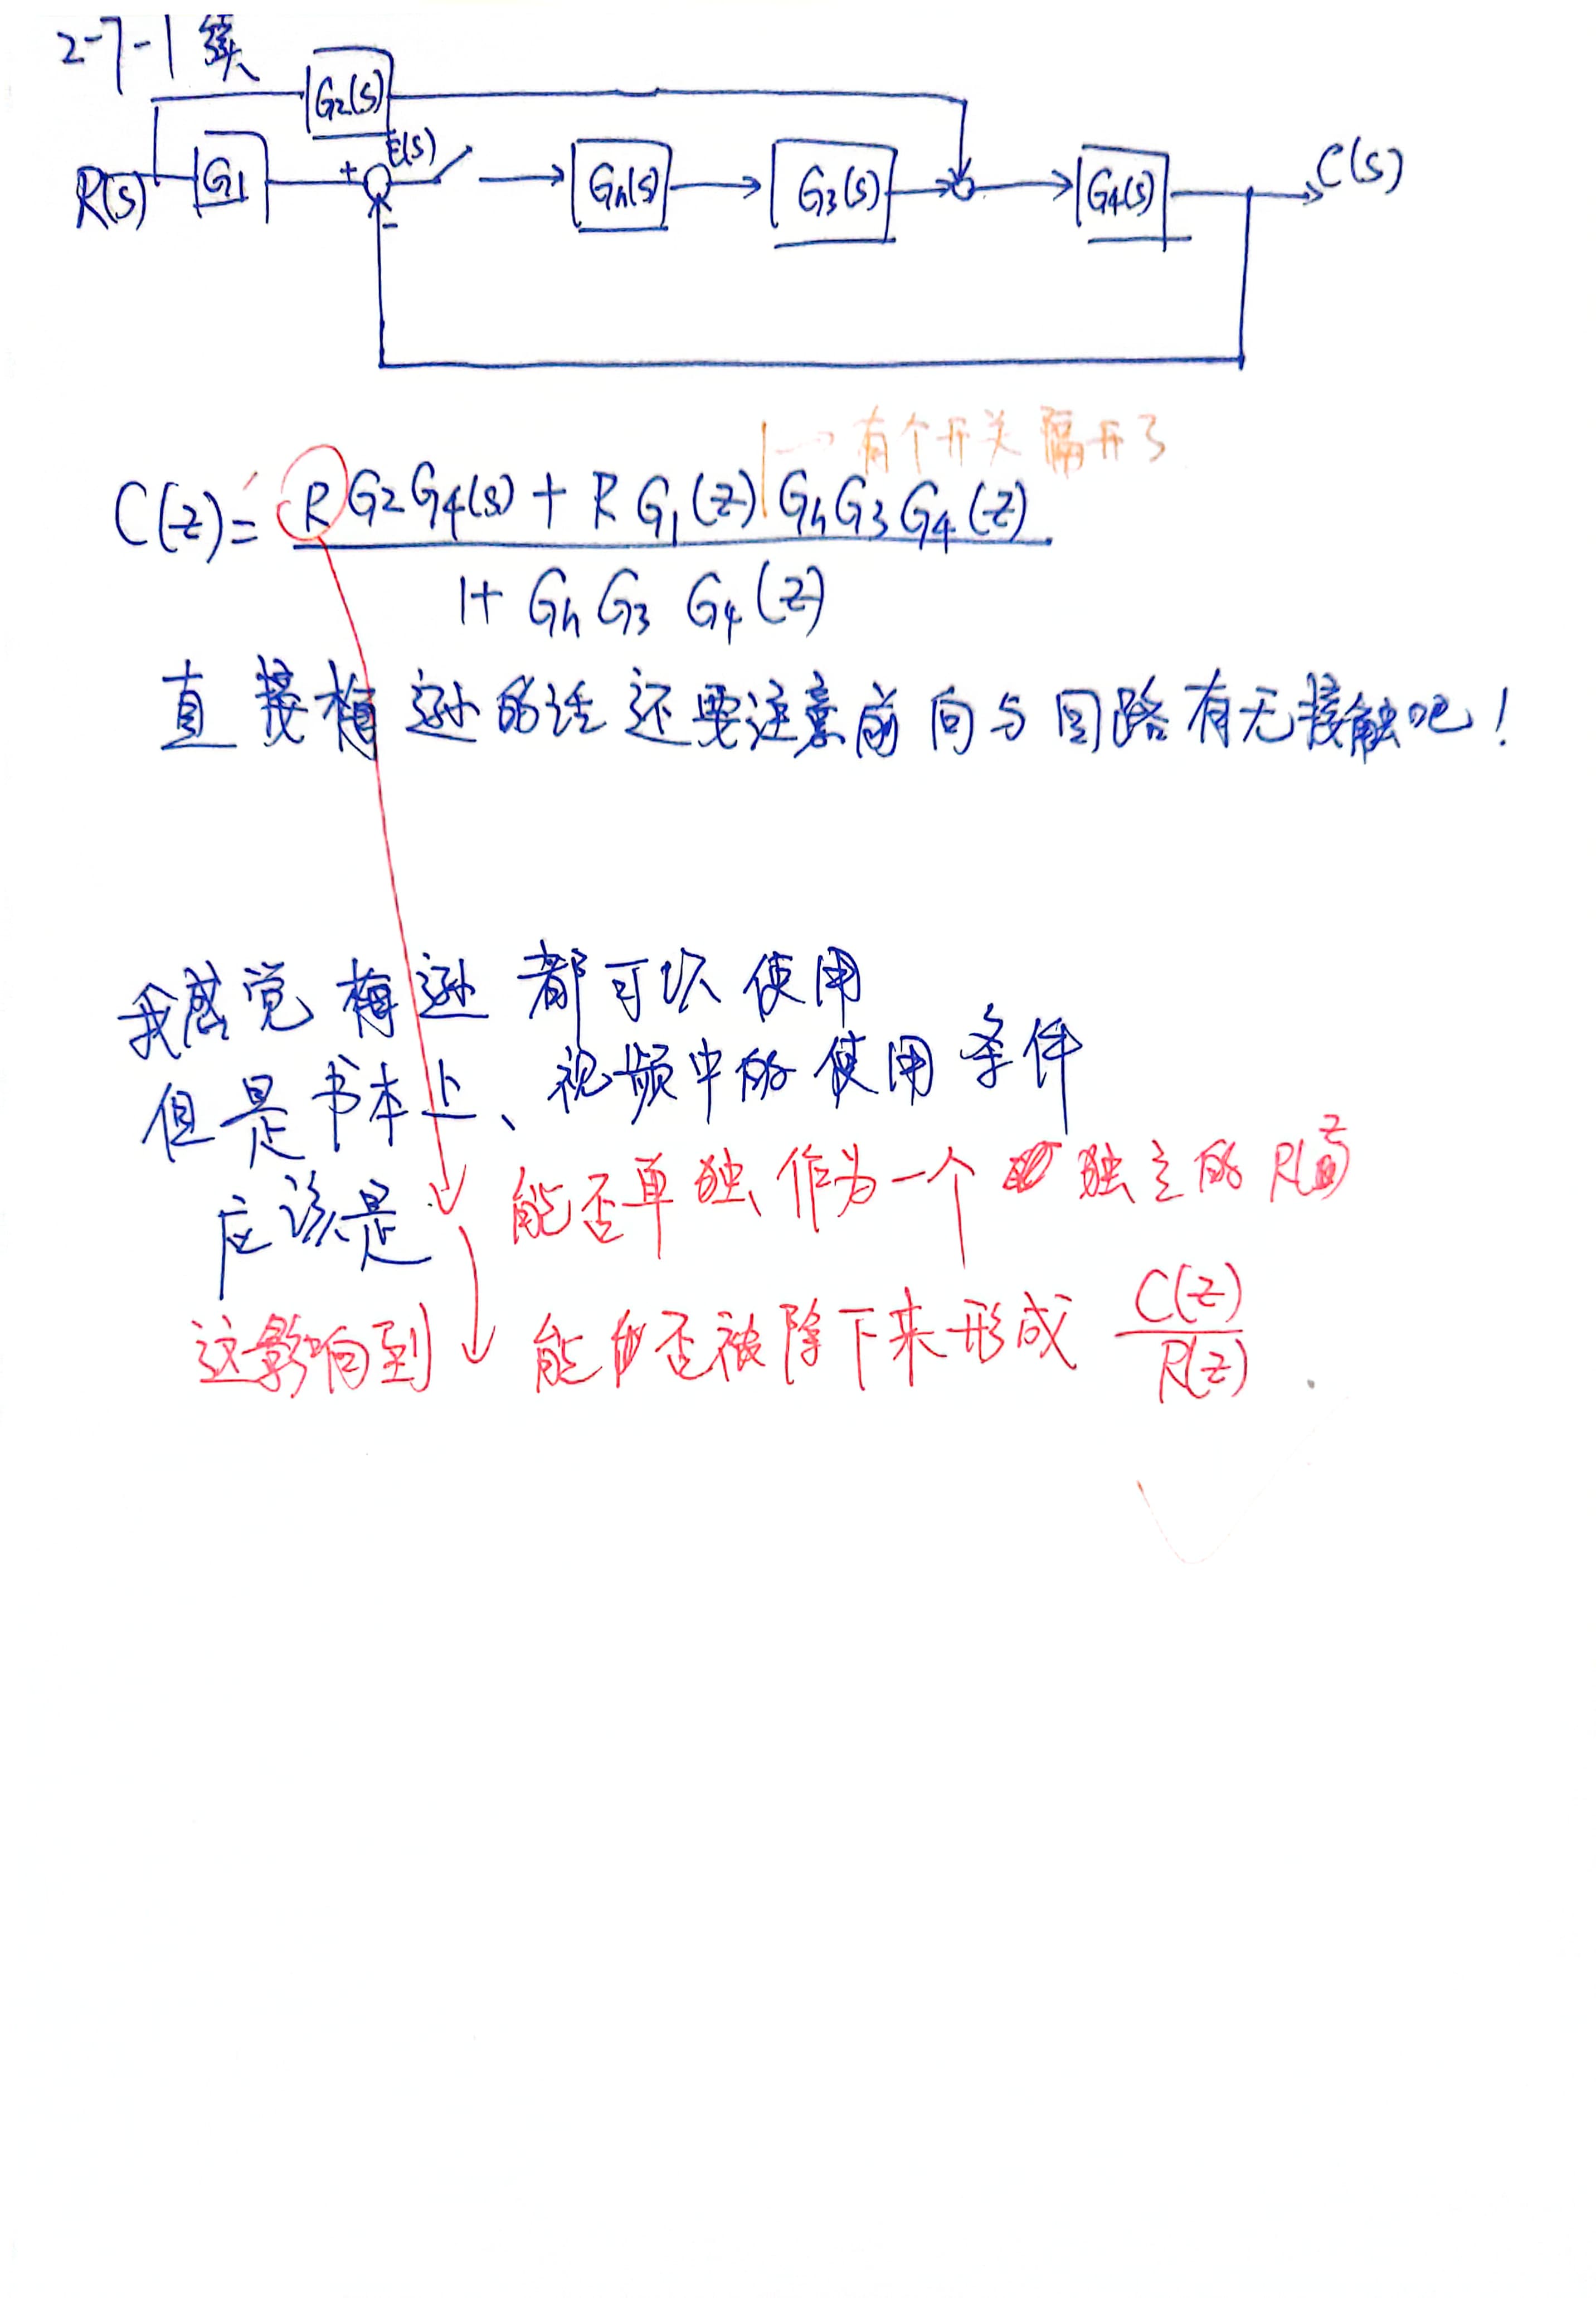 2-7-1 续
G2(s)
E(s)
R(s) G1 + Gh(s) G3(s) G4(s) C(s)
-
→ 有个开关隔开了
C(z) = RG2G4(s) + RG1(z) GhG3G4(z)
1+ GhG3 G4(z)
直接梅逊的话还要注意前向与回路有无接触吧！
我感觉梅逊都可以使用
但是书本上、视频中的使用条件
应该是 能否单独作为一个独立的R(z)
这影响到 能否被除下来形成 C(z)
R(z)